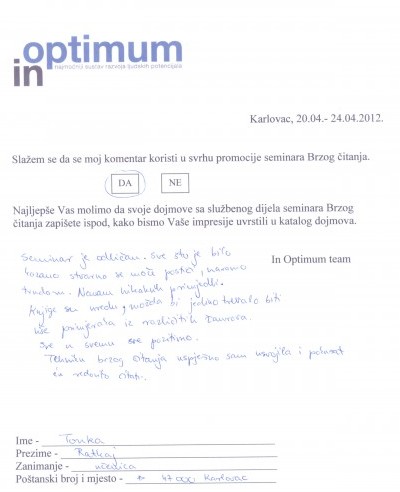 in optimum
najmoćniji sustav razvoja ljudskih potencijala
Karlovac, 20.04.- 24.04.2012.
Slažem se da se moj komentar koristi u svrhu promocije seminara Brzog čitanja.
DA NE
Najljepše Vas molimo da svoje dojmove sa službenog dijela seminara Brzog
čitanja zapišete ispod, kako bismo Vaše impresije uvrstili u katalog dojmova.
In Optimum team
Seminar je odličan. Sve što je bilo
kazano stvarno se može postići, naravno
trudom. Nemam nikakvih primjedbi.
Knjige su uredu, možda bi jedino trebalo biti
više primjera iz različitih
Sve u svemu sve pozitivno.
Tehniku brzog čitanja uspješno sam usvojila i
ću redovito čitati.
Ime - Tonka
Prezime - Ratkaj
Zanimanje - učenica
Poštanski broj i mjesto - 47000 Karlovac